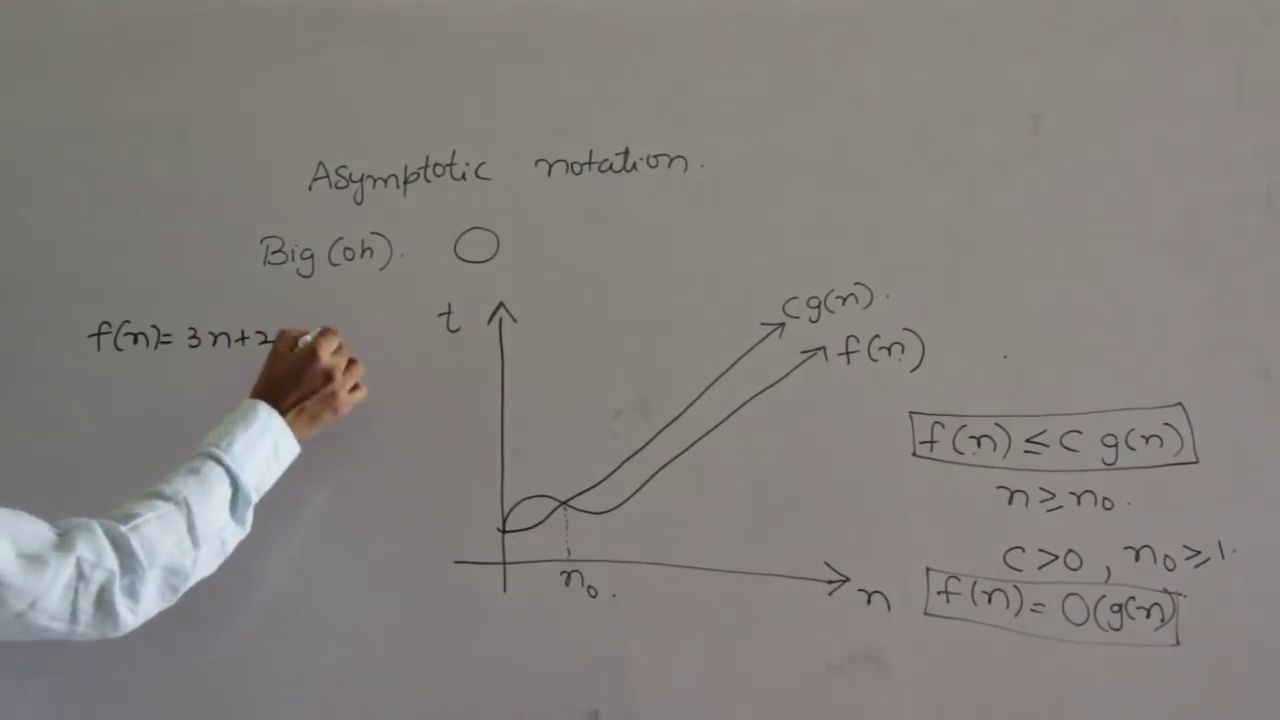 Asymptotic notation.
Big (oh). O
f(n)= 3n+2
t
cg(n).
f(n)
n₀.
n
f(n) ≤ c g(n)
n ≥ n₀.
c > 0, n₀ ≥ 1.
f(n) = O(g(n)